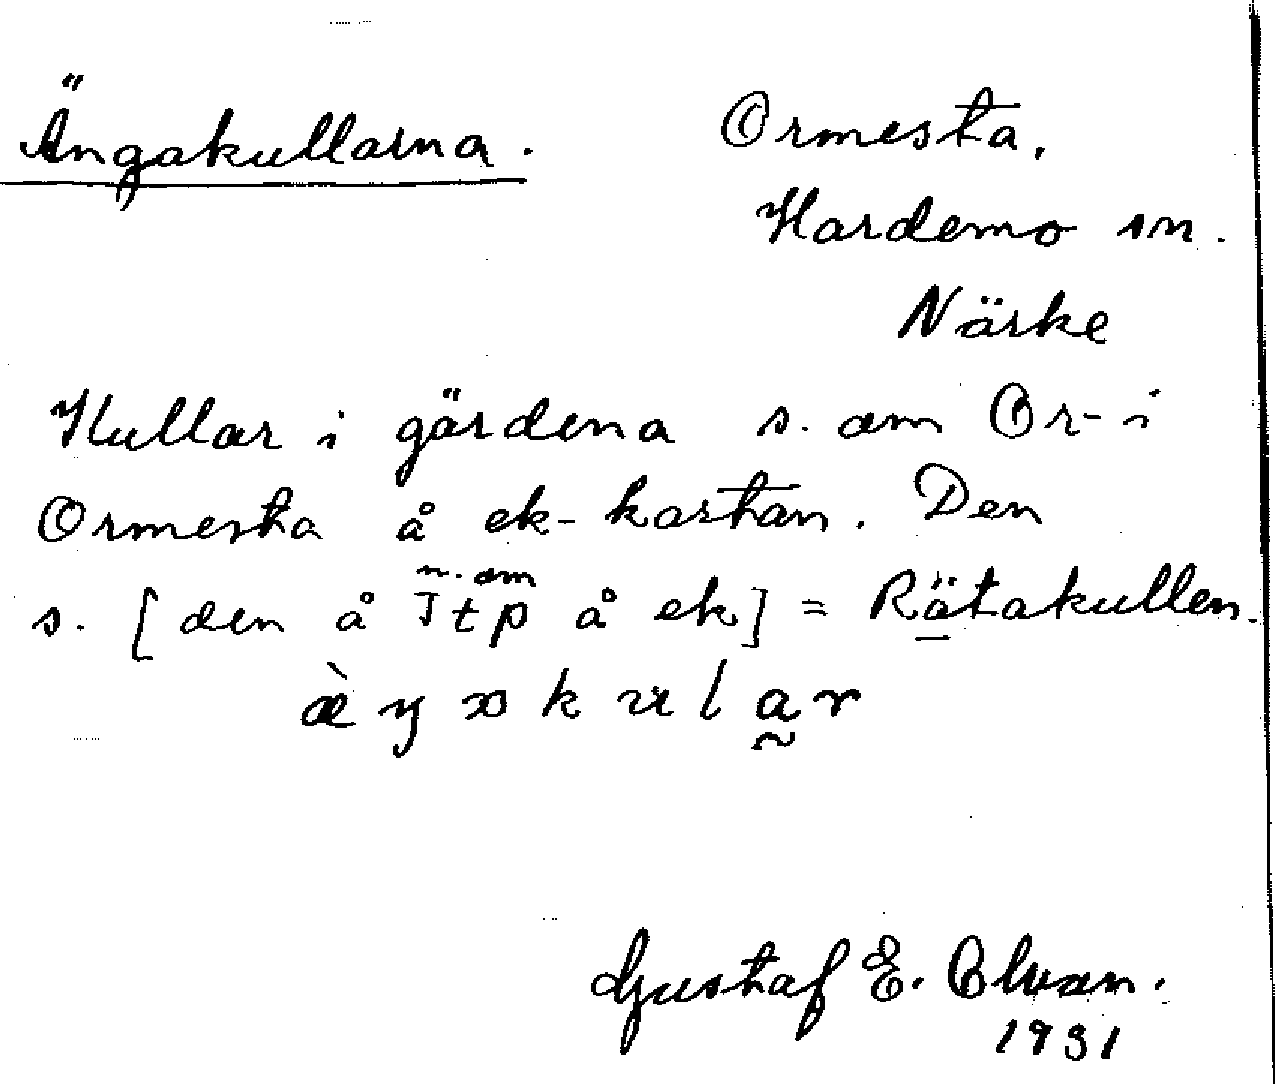 Ängakullarna.
Ormesta,
Hardemo sn.
Närke
Kullar i gärdena s. om Or- i
Ormesta å ek-kartan. Den
s. [den å n. om Jtp å ek] = Rätakullen.
Gustaf E. 
1931